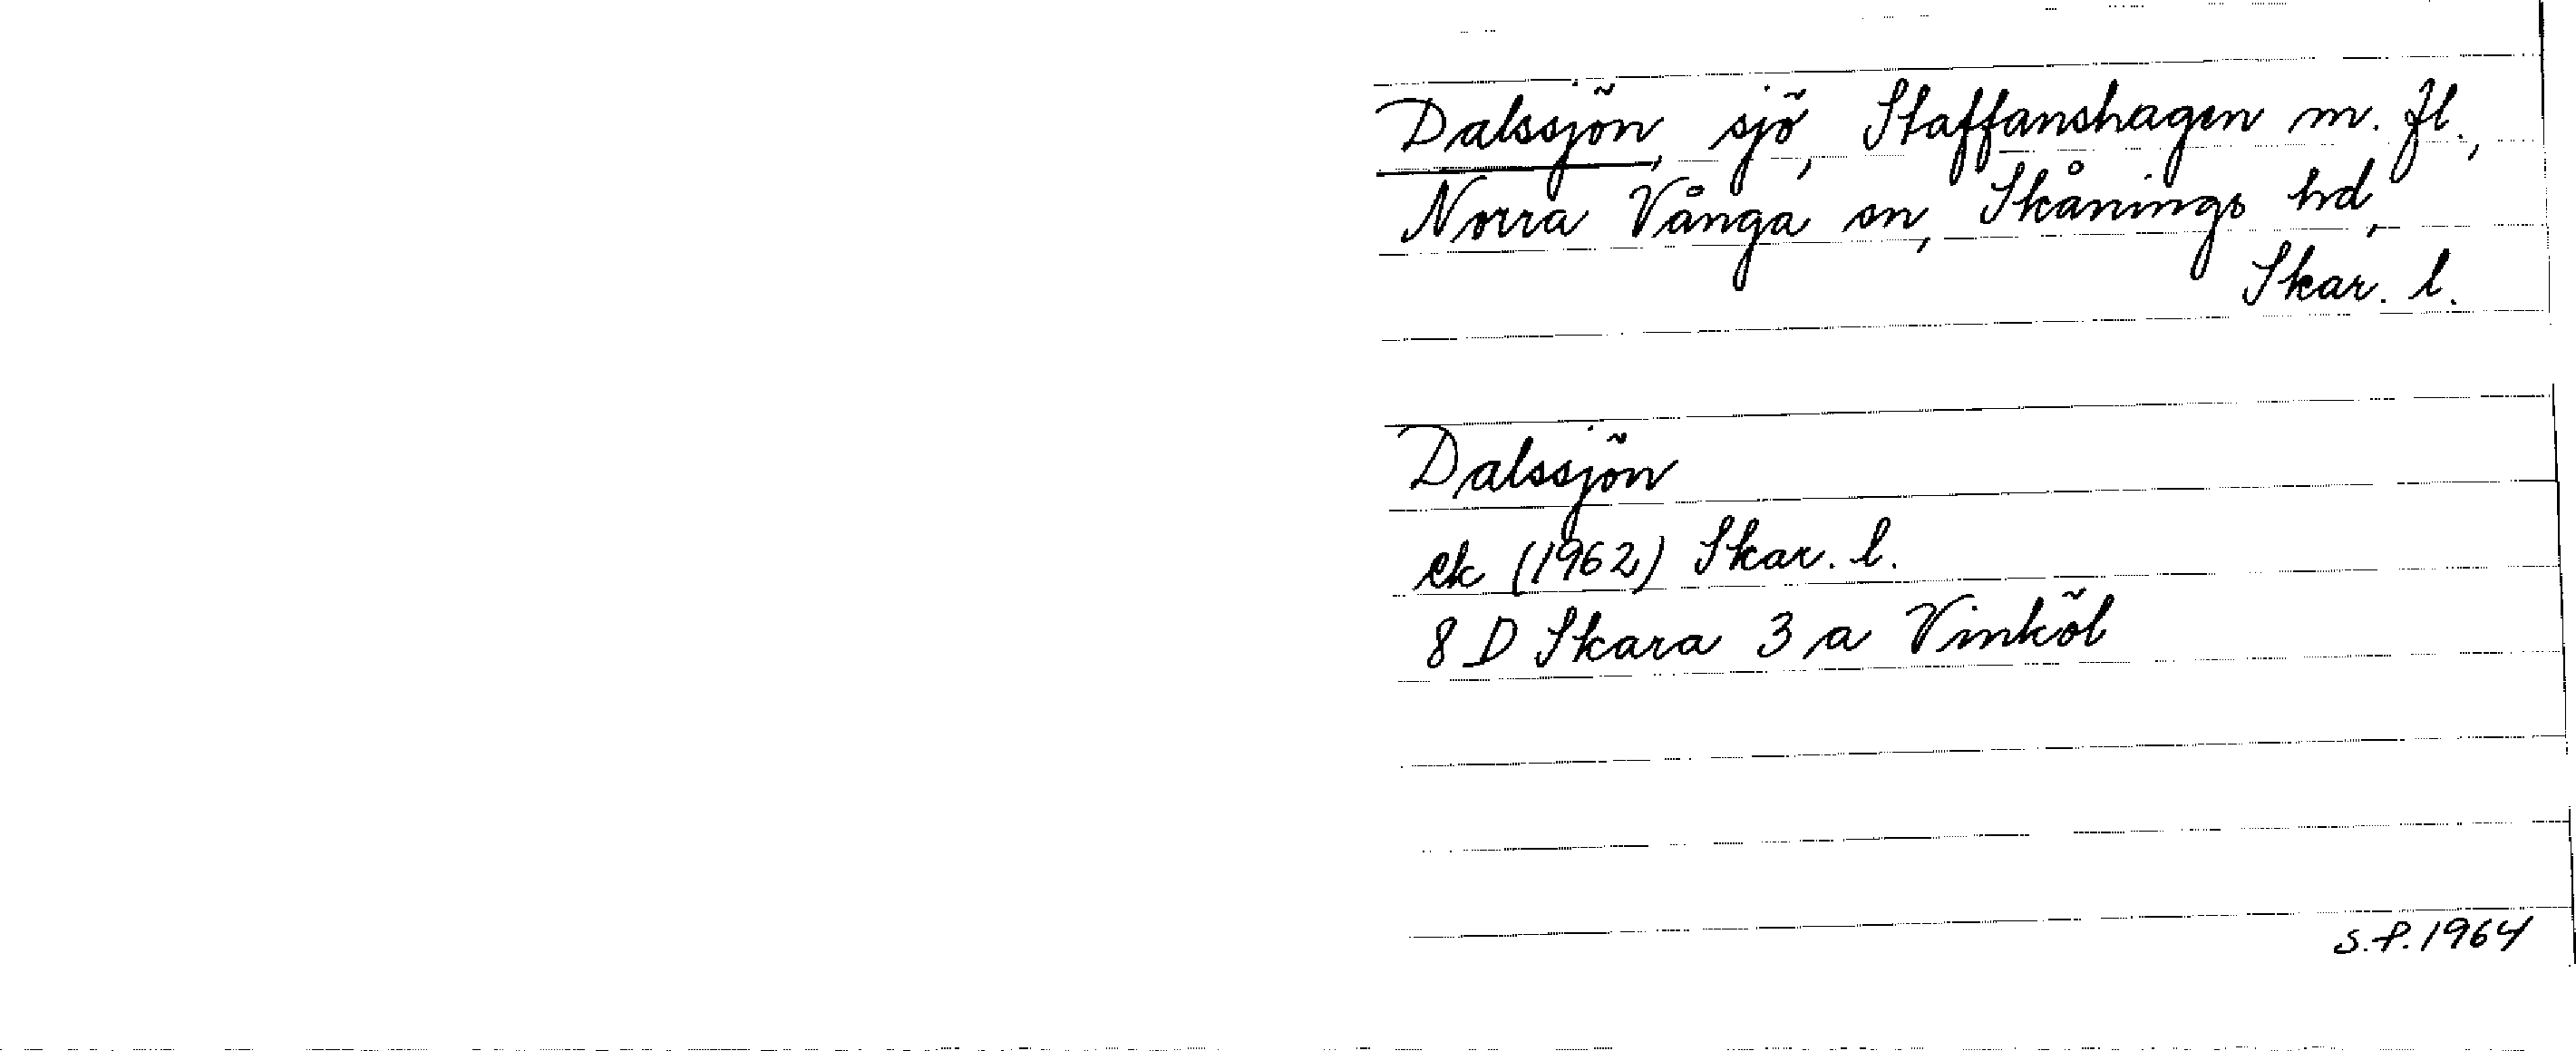 Dalssjön, sjö, Staffanshagen m. fl.,
Norra Vånga sn, Skånings hd,
Skar. l.
Dalssjön
ek (1962) Skar. l.
8 D Skara 3 a Vinköl
S.P. 1964